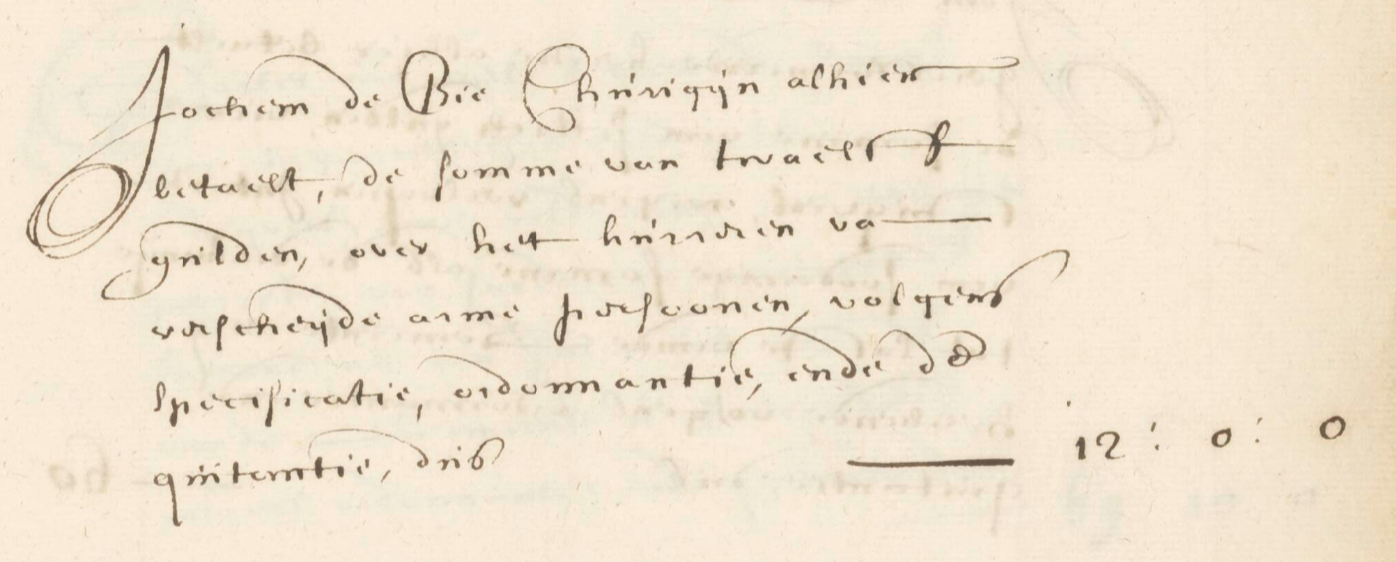 Jochem de Bie Chirurgijn alhier
betaelt, de somme van twaelf
gulden, over het cureren va
verscheijde arme persoonen, volgens
specificatie, ordonnantie, ende
quitantie, dus 12: 0: 0